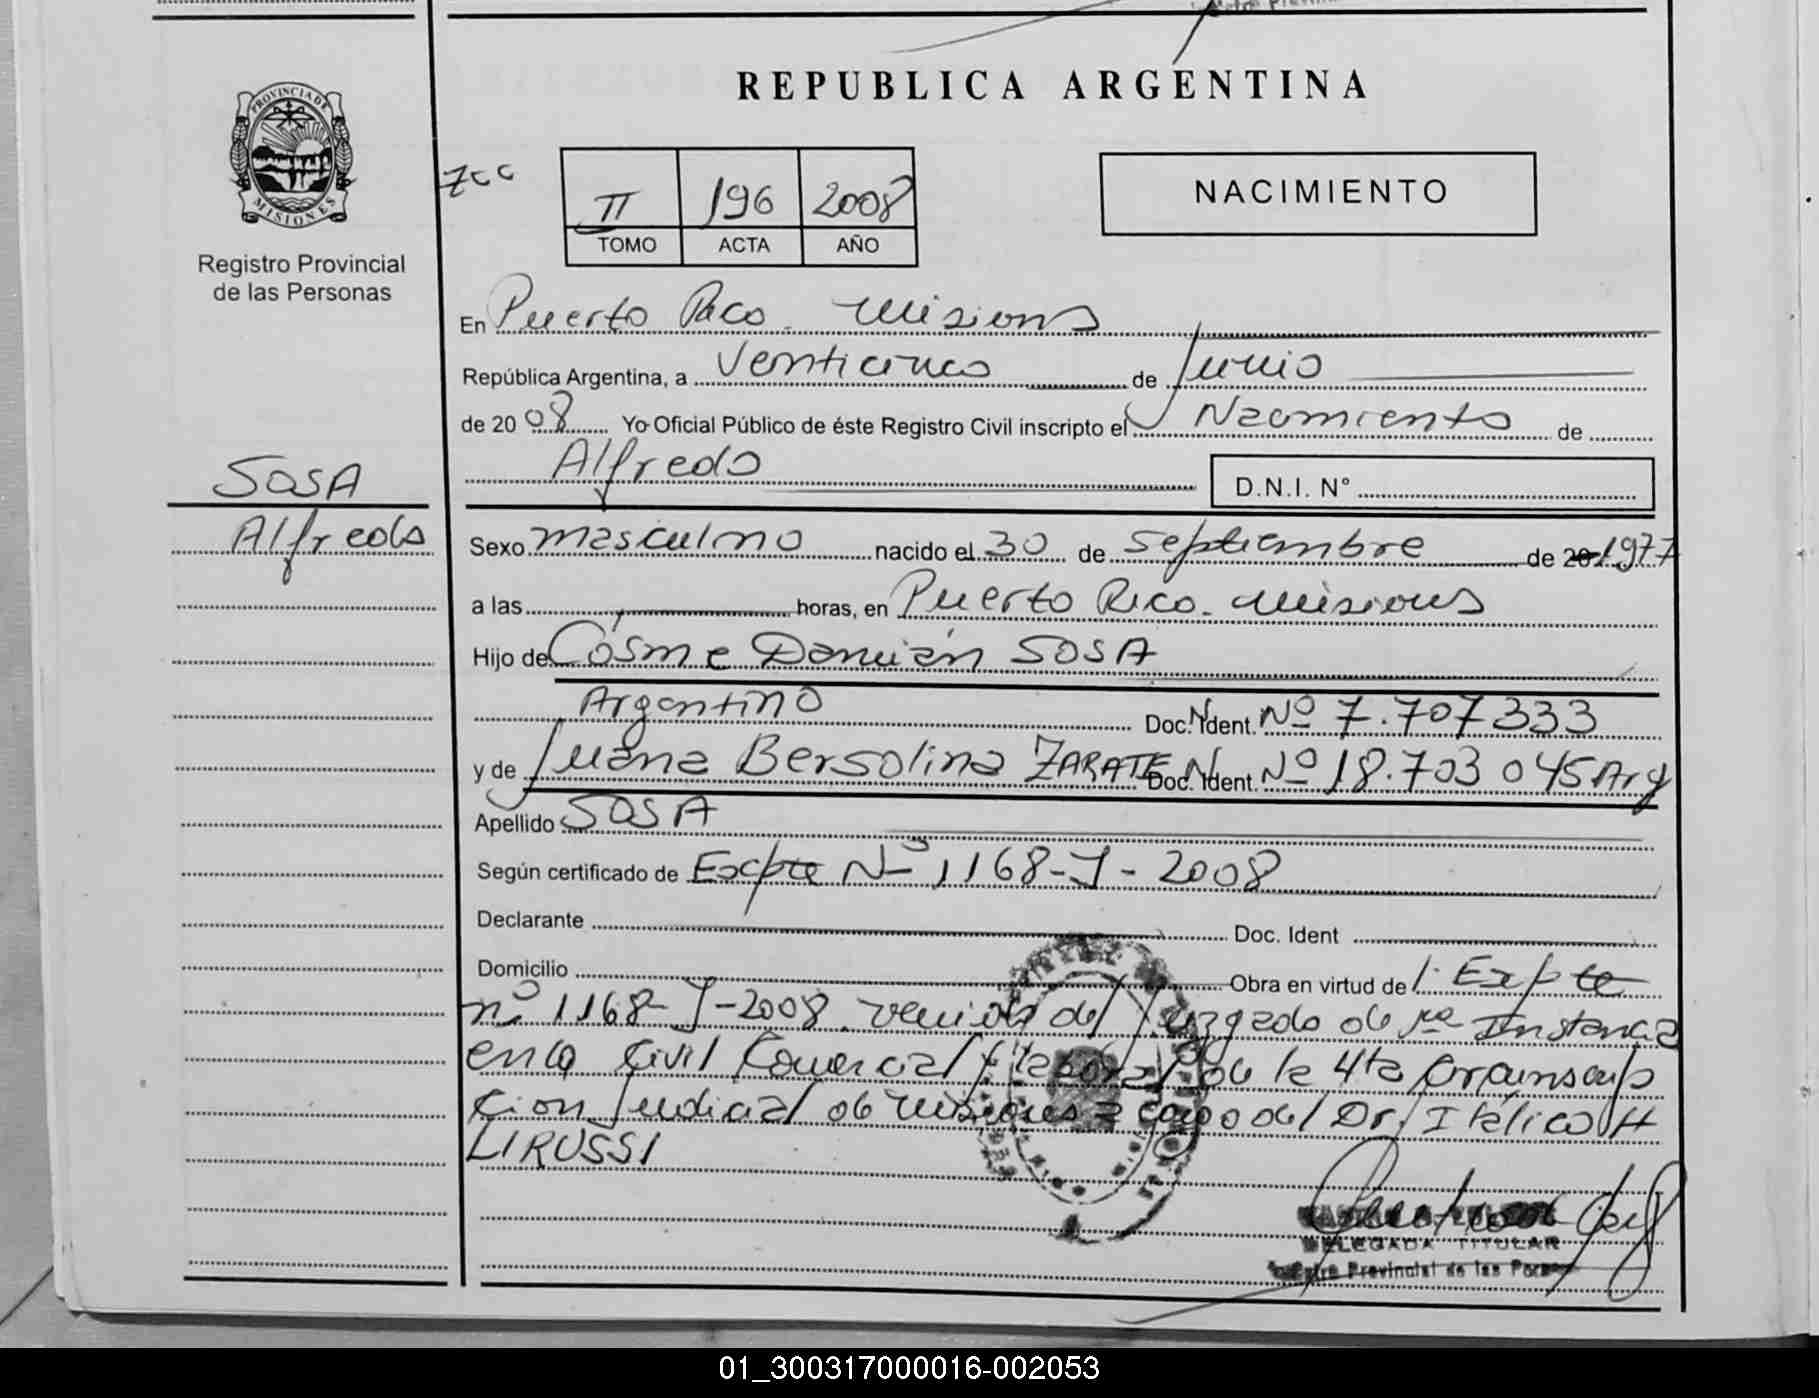 REPUBLICA ARGENTINA
PROVINCIA DE
MISIONES
Registro Provincial
de las Personas
II 196 2008
TOMO ACTA AÑO
NACIMIENTO
En Puerto Rico. Misiones
República Argentina, a Venticinco de Junio
de 2008 Yo Oficial Público de éste Registro Civil inscripto el Nacimiento de
Alfredo D.N.I. N°
SOSA
Alfredo
Sexo masculino nacido el 30 de septiembre de 20 1977
a las horas, en Puerto Rico. Misiones
Hijo de Cosme Damián SOSA
Argentino Doc. Ident. Nº 7.707333
y de Juana Bersolina ZARATE Doc. Ident. Nº 18.703 045 Arg
Apellido SOSA
Según certificado de Expte Nº 1168-J-2008
Declarante Doc. Ident
Domicilio Obra en virtud de Expte
nº 1168-J-2008 venido del Juzgado de 1ra Instancia
en lo Civil Comercial y laboral de la 4ta Circunscrip
cion Judicial de Misiones a cargo del Dr. Itálico H
LIRUSSI
DELEGADA TITULAR
Provincial de las
01_300317000016-002053